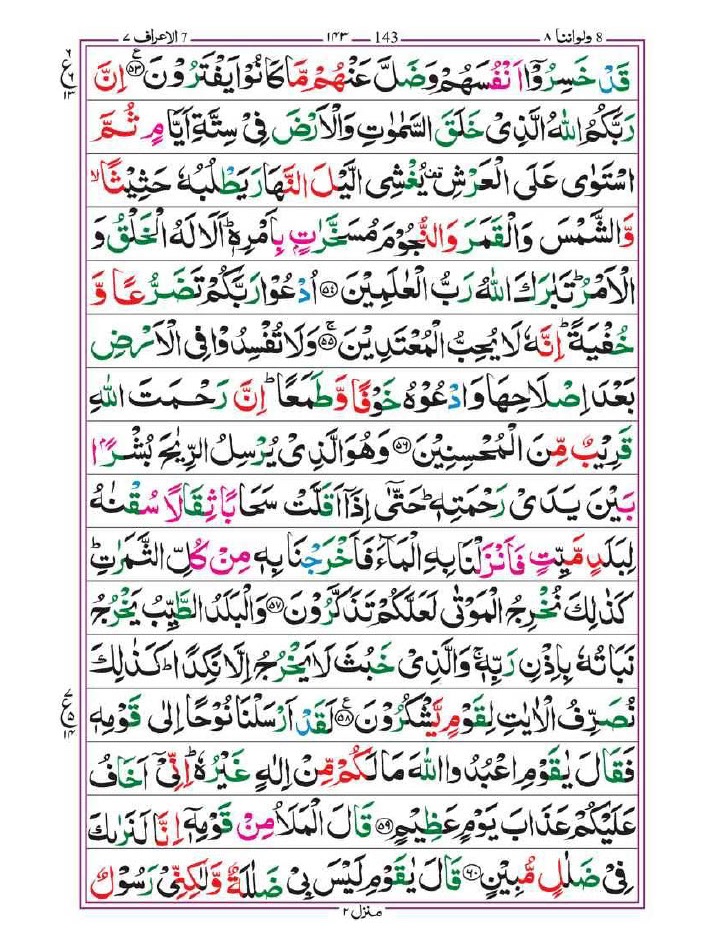 8 ولواننا ٨ — 143 — ١٤٣ — 7 الاعراف ٧
قَدْ خَسِرُوْۤا اَنْفُسَهُمْ وَضَلَّ عَنْهُمْ مَّا كَانُوْا يَفْتَرُوْنَ ﴿۵۳﴾ اِنَّ
رَبَّكُمُ اللّٰهُ الَّذِیْ خَلَقَ السَّمٰوٰتِ وَالْاَرْضَ فِیْ سِتَّةِ اَیَّامٍ ثُمَّ
اسْتَوٰی عَلَی الْعَرْشِ ۟ یُغْشِی الَّیْلَ النَّهَارَ یَطْلُبُهٗ حَثِیْثًا ۙ
وَّالشَّمْسَ وَالْقَمَرَ وَالنُّجُوْمَ مُسَخَّرٰتٍۭ بِاَمْرِهٖ ؕ اَلَا لَهُ الْخَلْقُ وَ
الْاَمْرُ ؕ تَبٰرَكَ اللّٰهُ رَبُّ الْعٰلَمِیْنَ ﴿۵۴﴾ اُدْعُوْا رَبَّكُمْ تَضَرُّعًا وَّ
خُفْیَةً ؕ اِنَّهٗ لَا یُحِبُّ الْمُعْتَدِیْنَ ﴿۵۵﴾ۚ وَلَا تُفْسِدُوْا فِی الْاَرْضِ
بَعْدَ اِصْلَاحِهَا وَادْعُوْهُ خَوْفًا وَّطَمَعًا ؕ اِنَّ رَحْمَتَ اللّٰهِ
قَرِیْبٌ مِّنَ الْمُحْسِنِیْنَ ﴿۵۶﴾ وَهُوَ الَّذِیْ یُرْسِلُ الرِّیٰحَ بُشْرًۢا
بَیْنَ یَدَیْ رَحْمَتِهٖ ؕ حَتّٰۤی اِذَاۤ اَقَلَّتْ سَحَابًا ثِقَالًا سُقْنٰهُ
لِبَلَدٍ مَّیِّتٍ فَاَنْزَلْنَا بِهِ الْمَآءَ فَاَخْرَجْنَا بِهٖ مِنْ كُلِّ الثَّمَرٰتِ ؕ
كَذٰلِكَ نُخْرِجُ الْمَوْتٰی لَعَلَّكُمْ تَذَكَّرُوْنَ ﴿۵۷﴾ وَالْبَلَدُ الطَّیِّبُ یَخْرُجُ
نَبَاتُهٗ بِاِذْنِ رَبِّهٖ ۚ وَالَّذِیْ خَبُثَ لَا یَخْرُجُ اِلَّا نَكِدًا ؕ كَذٰلِكَ
نُصَرِّفُ الْاٰیٰتِ لِقَوْمٍ یَّشْكُرُوْنَ ﴿۵۸﴾ لَقَدْ اَرْسَلْنَا نُوْحًا اِلٰی قَوْمِهٖ
فَقَالَ یٰقَوْمِ اعْبُدُوا اللّٰهَ مَا لَكُمْ مِّنْ اِلٰهٍ غَیْرُهٗ ؕ اِنِّیْۤ اَخَافُ
عَلَیْكُمْ عَذَابَ یَوْمٍ عَظِیْمٍ ﴿۵۹﴾ قَالَ الْمَلَاُ مِنْ قَوْمِهٖۤ اِنَّا لَنَرٰىكَ
فِیْ ضَلٰلٍ مُّبِیْنٍ ﴿۶۰﴾ قَالَ یٰقَوْمِ لَیْسَ بِیْ ضَلٰلَةٌ وَّلٰكِنِّیْ رَسُوْلٌ
منزل ۲
ع ٦ ٦ ١٣
ع ٧ ٥ ١٤